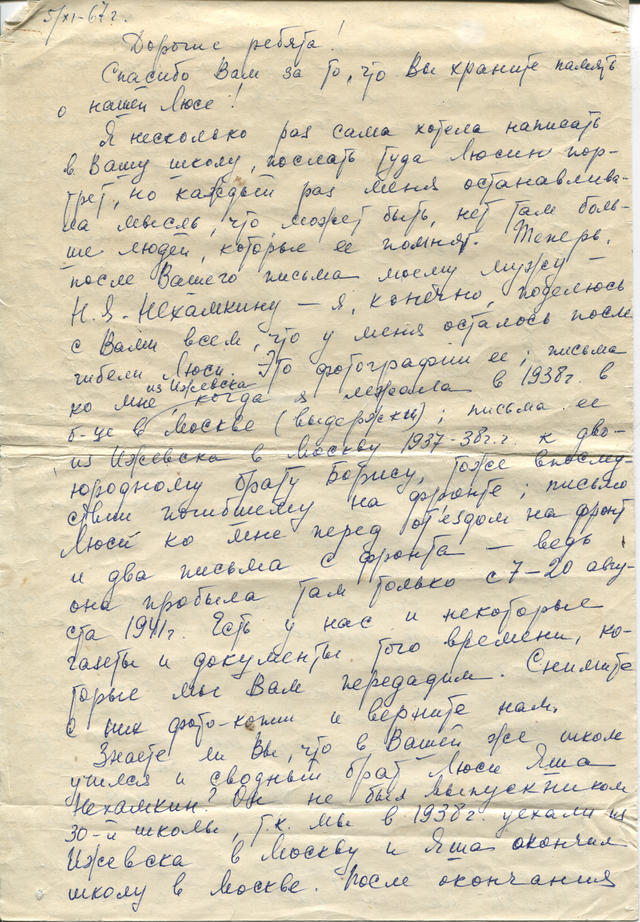 5/XI-67 г.
Дорогие ребята!
Спасибо Вам за то, что Вы храните память
о нашей Люсе!
Я несколько раз сама хотела написать
в Вашу школу, послать туда Люсин пор-
трет, но каждый раз меня останавлива-
ла мысль, что, может быть, нет там боль-
ше людей, которые ее помнят. Теперь,
после Вашего письма моему мужу –
Н.Я. Нехамкину – я, конечно, поделюсь
с Вами всем, что у меня осталось после
гибели Люси. Это фотографии ее; письма
из Ижевска
ко мне, когда я лежала в 1938 г. в
б-це в Москве (выдержки); письма ее
из Ижевска в Москву 1937-38 г.г. к дво-
юродному брату Борису, тоже впослед-
ствии погибшему на фронте; письмо
Люси ко мне перед от'ездом на фронт
и два письма с фронта – ведь
она пробыла там только с 7-20 авгу-
ста 1941 г. Есть у нас и некоторые
газеты и документы того времени, ко-
торые мы Вам передадим. Снимите
с них фото-копии и верните нам.
Знаете ли Вы, что в Вашей же школе
учился и сводный брат Люси Яша
Нехамкин? Он не был выпускником
30-й школы, т.к. мы в 1938 г. уехали из
Ижевска в Москву и Яша окончил
школу в Москве. После окончания